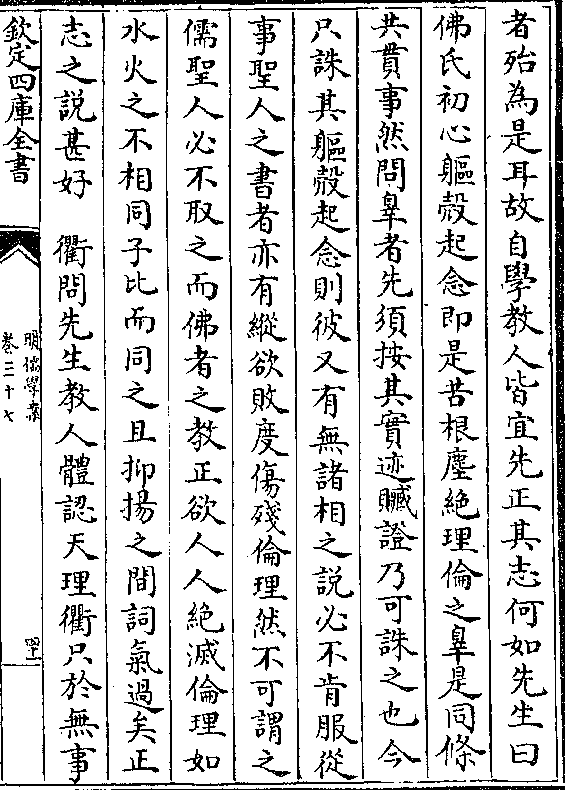 者殆為是耳故自學教人皆宜先正其志何如先生曰
佛氏初心軀殻起念即是苦根塵絶理倫之辠是同條
共貫事然問辠者先須按其實迹贓證乃可誅之也今
只誅其軀殻起念則彼又有無諸相之説必不肯服從
事聖人之書者亦有縱欲敗度傷殘倫理然不可謂之
儒聖人必不取之而佛者之教正欲人人絶滅倫理如
水火之不相同子比而同之且抑揚之間詞氣過矣正
志之説甚好　衢問先生教人體認天理衢只於無事
欽定四庫全書
明儒學案
卷三十七